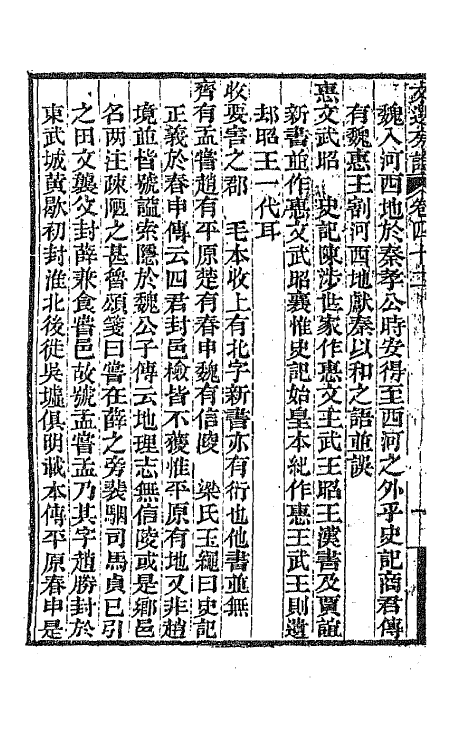 文選旁證 卷四十二
魏入河西地於秦孝公時安得王西河之外乎史記商君傳
有魏惠王割河西地獻秦以和之語並誤
惠文武昭　史記陳涉世家作惠文王武王昭王漢書及賈誼
新書並作惠文武昭襄惟史記始皇本紀作惠王武王則遺
却昭王一代耳
收要害之郡　毛本收上有北字新書亦有衍也他書並無
齊有孟嘗趙有平原楚有春申魏有信陵　梁氏玉繩曰史記
正義於春申傳云四君封邑檢皆不獲惟平原有地又非趙
境並皆號謚索隱於魏公子傳云地理志無信陵或是鄉邑
名兩注疎陋之甚魯頌箋曰嘗在薛之旁裴駰司馬貞已引
之田文襲父封薛兼食嘗邑故號孟嘗孟乃其字趙勝封於
東武城黃歇初封淮北後徙吳墟俱明載本傳平原春申是